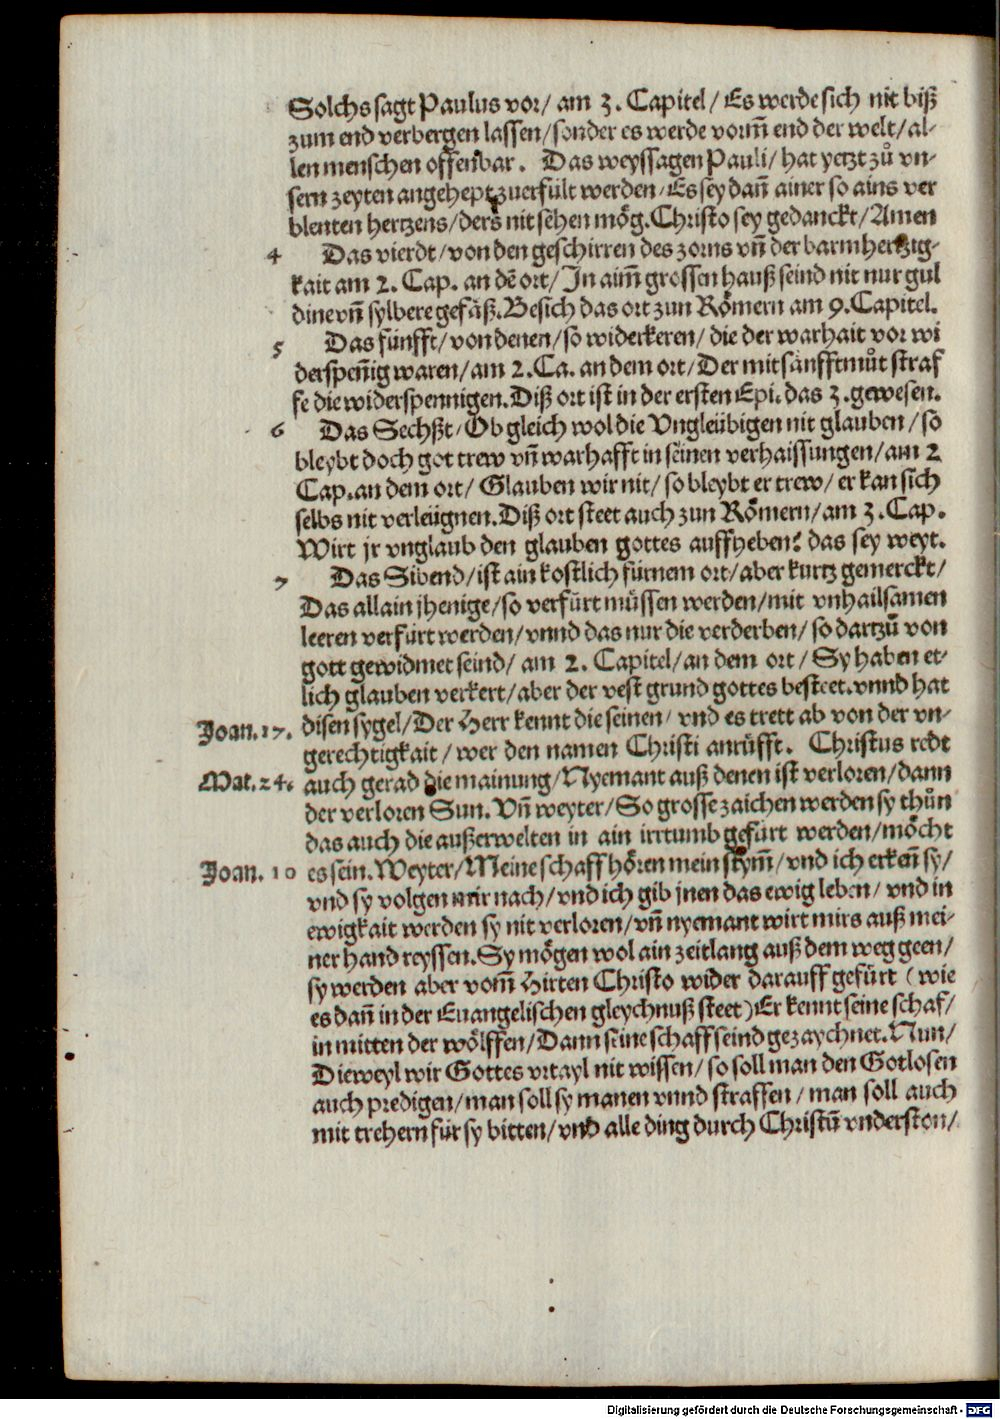 Solchs sagt Paulus vor/ am 3. Capitel/ Es werde sich nit biß
zum end verbergen lassen/ sonder es werde vorm̃ end der welt/ al-
len menschen offenbar. Das weyssagen Pauli/ hat yetzt zů vn-
sern zeyten angehept zuerfült werden/ Es sey dañ ainer so ains ver
blenten hertzens/ ders nit sehen mög. Christo sey gedanckt/ Amen
4 Das vierdt/ von den geschirren des zorns vñ der barmhertzig-
kait am 2. Cap. an dẽ ort/ In aim̃ grossen hauß seind nit nur gul
dine vñ sylbere gefäß. Besich das ort zun Römern am 9. Capitel.
5 Das fünfft/ von denen/ so widerkeren/ die der warhait vor wi
derspeñig waren/ am 2. Ca. an dem ort/ Der mit sänfftmůt straf
fe die widerspennigen. Diß ort ist in der ersten Epi. das 3. gewesen.
6 Das Sechßt/ Ob gleich wol die Vngleübigen nit glauben/ so
bleybt doch got trew vñ warhafft in seinen verhaissungen/ am 2
Cap. an dem ort/ Glauben wir nit/ so bleybt er trew/ er kan sich
selbs nit verleügnen. Diß ort steet auch zun Römern/ am 3. Cap.
Wirt jr vnglaub den glauben gottes auffheben? das sey weyt.
7 Das Sibend/ ist ain kostlich fürnem ort/ aber kurtz gemerckt/
Das allain jhenige/ so verfürt müssen werden/ mit vnhailsamen
leeren verfürt werden/ vnnd das nur die verderben/ so dartzů von
gott gewidmet seind/ am 2. Capitel/ an dem ort/ Sy haben et-
lich glauben verkert/ aber der vest grund gottes besteet. vnnd hat
Joan. 17. disen sygel/ Der Herr kennt die seinen/ vnd es trett ab von der vn-
gerechtigkait/ wer den namen Christi anrüfft. Christus redt
Mat. 24. auch gerad die mainung/ Nyemant auß denen ist verloren/ dann
der verloren Sun. Vñ weyter/ So grosse zaichen werden sy thůn
das auch die außerwelten in ain irrtumb gefürt werden/ möcht
Joan. 10 es sein. Weyter/ Meine schaff hören mein stym̃/ vnd ich erkeñ sy/
vnd sy volgen mir nach/ vnd ich gib jnen das ewig leben/ vnd in
ewigkait werden sy nit verloren/ vñ nyemant wirt mirs auß mei-
ner hand reyssen. Sy mögen wol ain zeitlang auß dem weg geen/
sy werden aber vom̃ Hirten Christo wider darauff gefürt (wie
es dañ in der Euangelischen gleychnuß steet) Er kennt seine schaf/
in mitten der wölffen/ Dann seine schaff seind gezaychnet. Nun/
Dieweyl wir Gottes vrtayl nit wissen/ so soll man den Gotlosen
auch predigen/ man soll sy manen vnnd straffen/ man soll auch
mit trehern für sy bitten/ vnd alle ding durch Christũ vnderston/
Digitalisierung gefördert durch die Deutsche Forschungsgemeinschaft - DFG